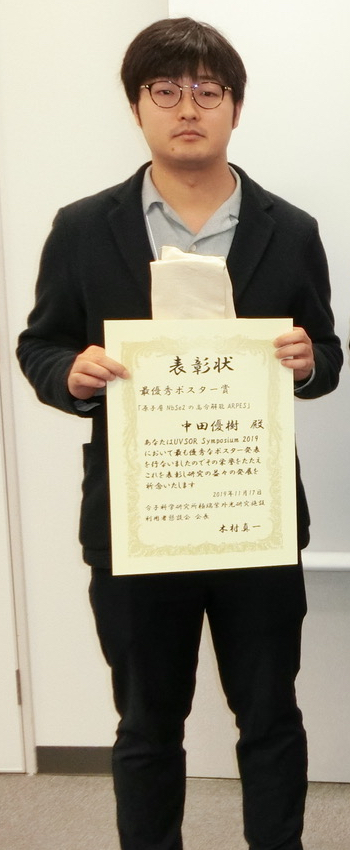 表彰状
最優秀ポスター賞
「原子層 NbSe2 の高分解能 ARPES」
中田優樹 殿
あなたはUVSOR Symposium 2019
において最も優秀なポスター発表
を行ないましたのでその栄誉をたたえ
これを表彰し研究の益々の発展を
祈念いたします
2019年11月17日
分子科学研究所極端紫外光研究施設
利用者懇談会 会長
木村真一